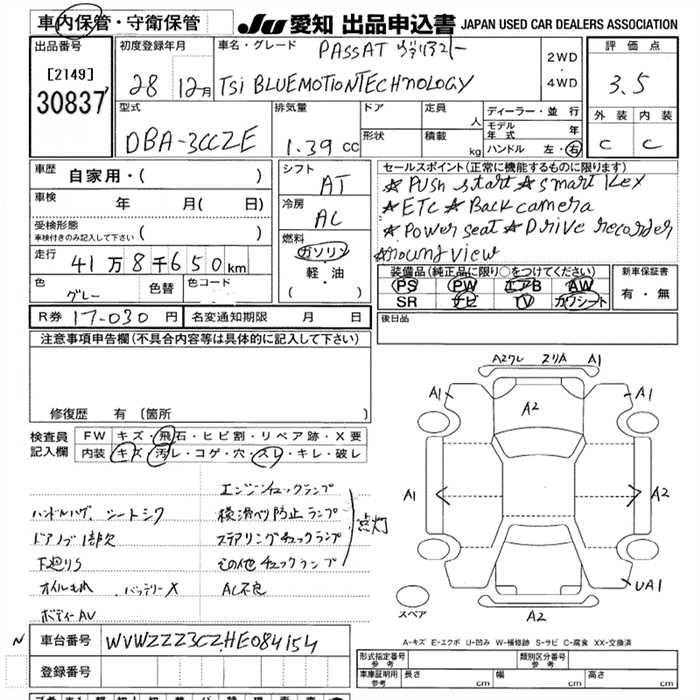 車内保管・守衛保管
JU 愛知 出品申込書 JAPAN USED CAR DEALERS ASSOCIATION
出品番号
[2149]
30837
初度登録年月
28 12月
車名・グレード PASSAT ヴァリアント
TSi BLUEMOTIONTECHNOLOGY
2WD
・
4WD
評価点
3.5
外装 内装
C C
型式
DBA-3CCZE
排気量
1.39 cc
ドア
形状
定員 人
積載 kg
ディーラー・並行
モデル年式 年
ハンドル 左・右
車歴 自家用・( )
車検 年 月( 日)
受検形態
車検付きのみ記入して下さい ( )
走行 41万8千650km
色 グレー
色替
色コード
シフト
AT
冷房
AC
燃料
ガソリン
・
軽・油
( )
セールスポイント(正常に機能するものに限ります)
☆Push start ☆smart Key
☆ETC ☆Back camera
☆Power seat ☆Drive recorder
☆Around view
装備品(純正品に限り○をつけてください)
PS PW エアB AW
SR ナビ TV カワシート
新車保証書
有・無
R券 17-030 円
名変通知期限 月 日
後日品
注意事項申告欄(不具合内容等は具体的に記入して下さい)
修復歴 有(箇所 )
検査員
記入欄
FW キズ・飛石・ヒビ割・リペア跡・X要
内装 キズ・汚レ・コゲ・穴・スレ・キレ・破レ
エンジンチェックランプ
ハンドルハゲ、シートシワ 横滑べり防止ランプ
ドアノブ1部欠 ステアリングチェックランプ
点灯
下廻りS その他チェックランプ
オイルもれ . バッテリーX AC不良
ボディーAV
A2ワレ A1
A1 A2 A1
A1 A2
UA1
A2
スペア
A-キズ E-エクボ U-凹み W-補修跡 S-サビ C-腐食 XX-交換済
N 車台番号 WVWZZZ3CZHE084154
登録番号
形式指定番号
参考
類別区分番号
参考
車庫証明用
参考
長さ cm 幅 cm 高さ cm